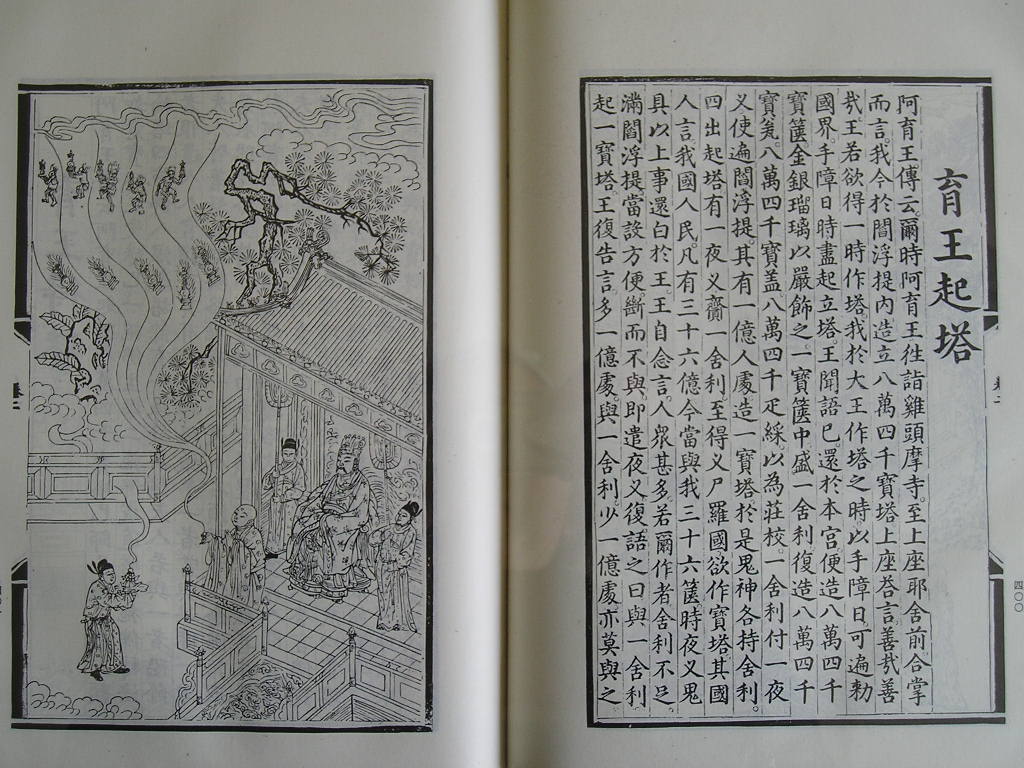 育王起塔
阿育王傳云。爾時阿育王往詣雞頭摩寺。至上座耶舍前。合掌
而言。我今於閻浮提內造立八萬四千寶塔。上座荅言。善哉善
哉。王若欲得一時作塔。我於大王作塔之時。以手障日。可遍勅
國界。手障日時。盡起立塔。王聞語已。還於本宮。便造八萬四千
寶篋。金銀瑠璃以嚴飾之。一寶篋中盛一舍利。復造八萬四千
寶瓮。八萬四千寶盖。八萬四千疋綵。以為莊校。一舍利付一夜
义。使遍閻浮提。其有一億人處。造一寶塔。於是鬼神各持舍利。
四出起塔。有一夜义。齎一舍利。至得义尸羅國。欲作寶塔。其國
人言。我國人民。凡有三十六億。今當與我三十六篋。時夜义鬼
具以上事。還白於王。王自念言。人衆甚多。若爾作者。舍利不足
滿閻浮提。當設方便。斷而不與。即遣夜义復語之曰。與一舍利
起一寶塔。王復告言。多一億處。與一舍利。少一億處。亦莫與之
卷二
四〇〇
卷二